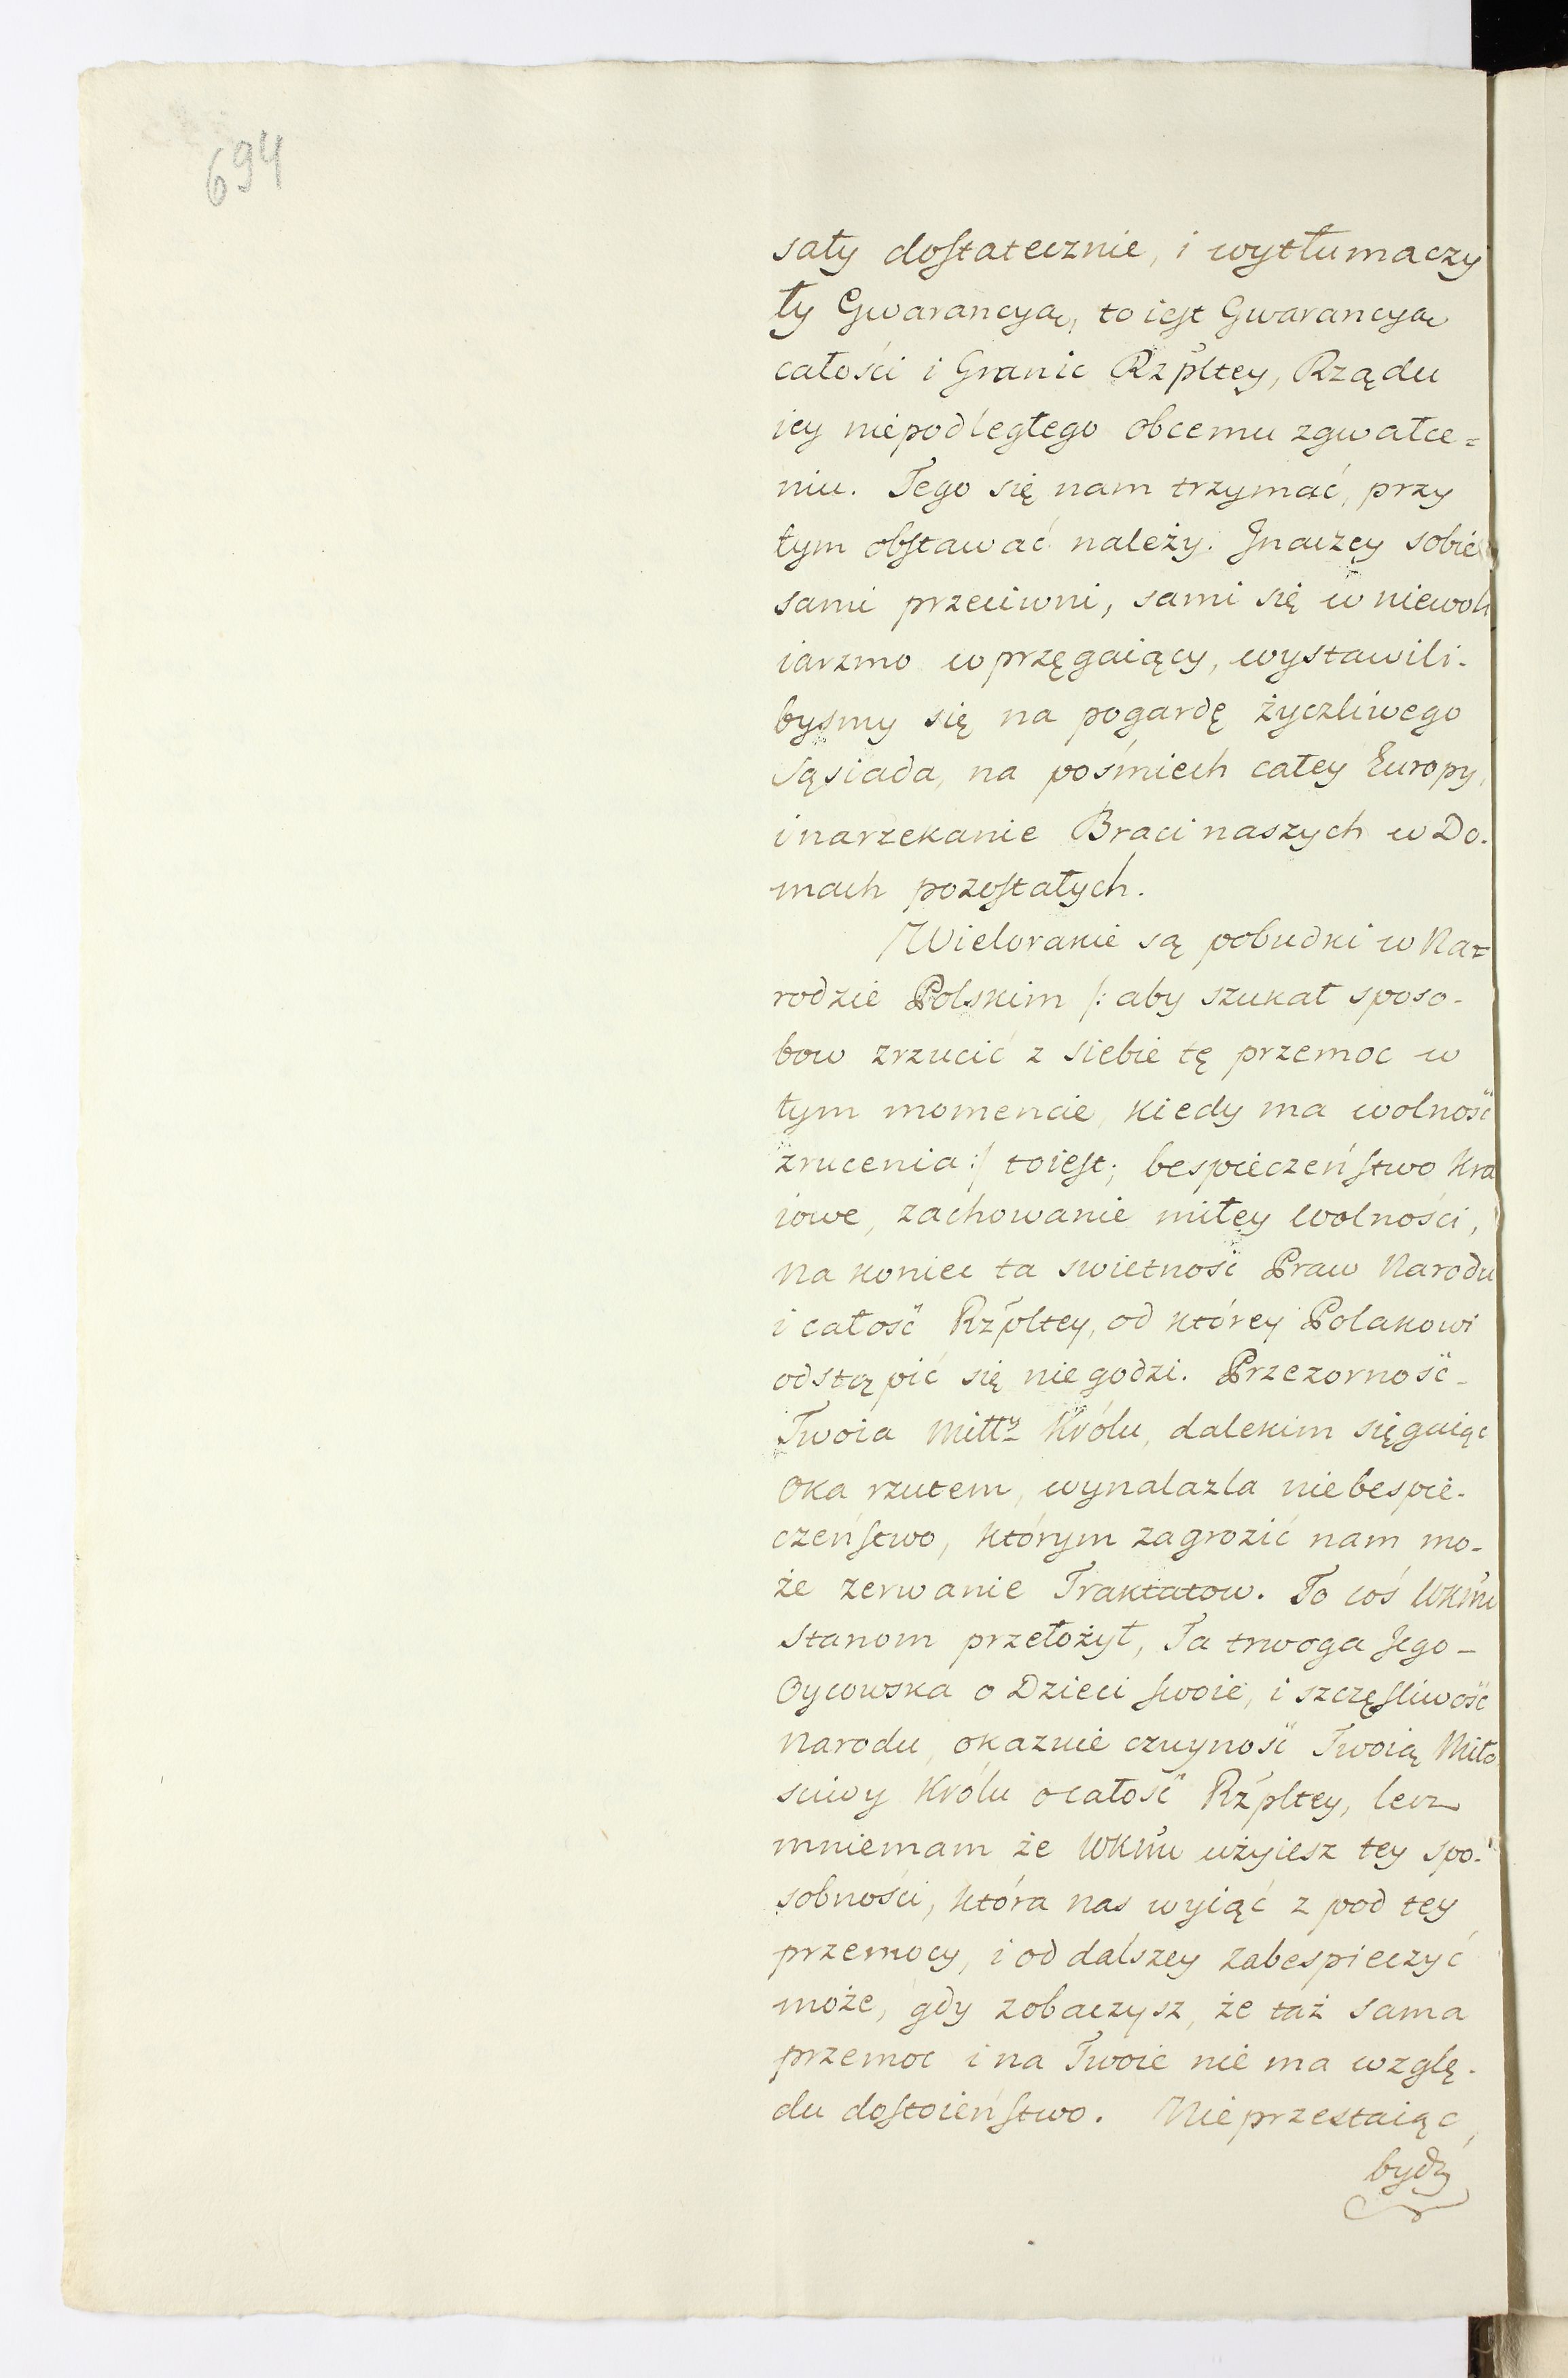 694
sały dostatecznie, i wytłumaczy
ły Gwarancyą, to iest Gwarancyą
całości i Granic Rzpltey, Rządu
iey niepodległego obcemu zgwałce=
niu. Tego się nam trzymać, przy
tym obstawać należy. Jnaczey sobie
sami przeciwni, sami się w niewoli
iarzmo wprzęgaiący, wystawili-
bysmy się na pogardę życzliwego
Sąsiada, na pośmiech całey Europy,
i narzekanie Braci naszych w Do-
mach pozostałych.
Wielorakie są pobudki w Na=
rodzie Polskim /: aby szukał sposo-
bow zrzucić z siebie tę przemoc w
tym momencie, kiedy ma wolność
zrucenia :/ toiest; bespieczeństwo Kra
iowe, zachowanie miłey wolności,
na koniec ta swietność Praw Narodu
i całość Rzpltey, od którey Polakowi
odstąpić się niegodzi. Przezorność-
Twoia Miłły Królu, dalekim sięgaiąc
oka rzutem, wynalazla niebespie-
czeństwo, którym zagrozić nam mo-
że zerwanie Traktatow. To coś WKMć
Stanom przełożył, Ta trwoga Jego-
Oycowska o Dzieci swoie, i szczęsliwość
Narodu, okazuie czuyność Twoią Miło
sciwy Królu o całość Rzpltey, lecz
mniemam że WKMć użyiesz tey spo-
sobności, która nas wyiąć z pod tey
przemocy, i od dalszey zabespieczyć
może, gdy zobaczysz, że taż sama
przemoc i na Twoie nie ma wzglę-
du dostoieństwo. Nieprzestaiąc,
bydź